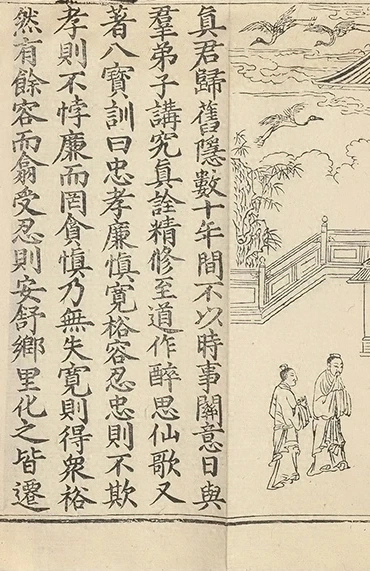 眞君歸舊隱數十年間不以時事關意日與
羣弟子講究眞詮精修至道作醉思仙歌又
著八寶訓曰忠孝廉愼寬裕容忍忠則不欺
孝則不悖廉而罔貪愼乃無失寬則得衆裕
然有餘容而翕受忍則安舒鄉里化之皆遷